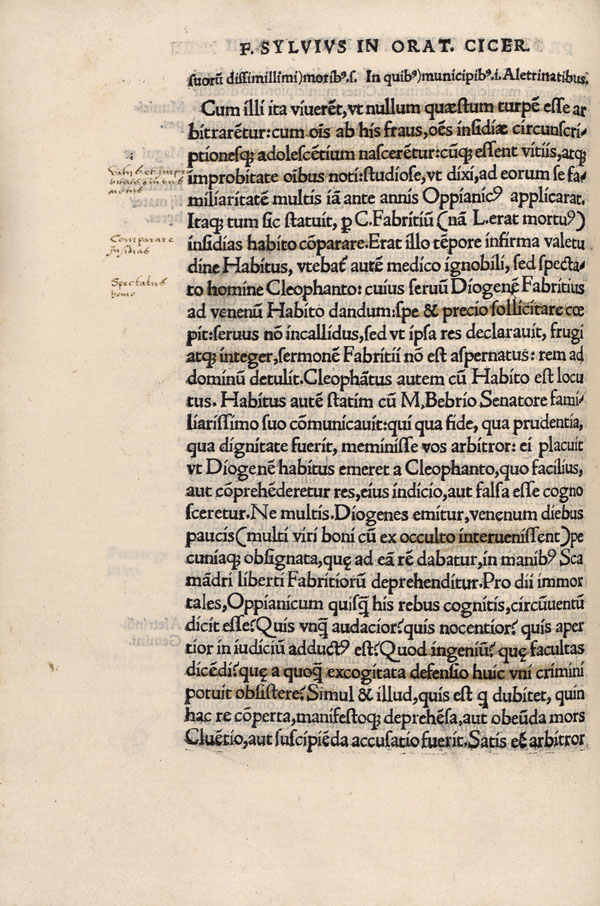 F. SYLVIVS IN ORAT. CICER.
suorũ dissimillimi)moribꝰ.s. In quibꝰ)municipibꝰ.i. Aletrinatibus.
Cum illi ita viuerẽt, vt nullum quæstum turpẽ esse ar
bitrarẽtur: cum oĩs ab his fraus, oẽs insidiæ circunscri-
ptionesq; adolescẽtium nascerẽtur: cũq; essent vitiis, atq;
improbitate oibus noti: studiose, vt dixi, ad eorum se fa-
miliaritatẽ multis iã ante annis Oppianicꝰ applicarat.
Itaq; tum sic statuit, ꝑ C. Fabritiũ (nã L. erat mortuꝰ)
insidias habito cõparare. Erat illo tẽpore infirma valetu
dine Habitus, vtebat᷑ autẽ medico ignobili, sed specta-
to homine Cleophanto: cuius seruũ Diogenẽ Fabritius
ad venenũ Habito dandum: spe & precio sollicitare cœ
pit: seruus nõ incallidus, sed vt ipsa res declarauit, frugi
atq; integer, sermonẽ Fabritii nõ est aspernatus: rem ad
dominũ detulit. Cleophãtus autem cũ Habito est locu
tus. Habitus autẽ statim cũ M, Bebrio Senatore fami-
liarissimo suo cõmunicauit: qui qua fide, qua prudentia,
qua dignitate fuerit, meminisse vos arbitror: ei placuit
vt Diogenẽ habitus emeret a Cleophanto, quo facilius,
aut cõprehẽderetur res, eius indicio, aut falsa esse cogno
sceretur. Ne multis. Diogenes emitur, venenum diebus
paucis (multi viri boni cũ ex occulto interuenissent) pe
cuniaq; obsignata, quę ad eã rẽ dabatur, in manibꝰ Sca
mãdri liberti Fabritiorũ deprehenditur. Pro dii immor
tales, Oppianicum quisq̃ his rebus cognitis, circũuentũ
dicit esse? Quis vnq̃ audacior? quis nocentior? quis aper
tior in iudiciũ adductꝰ est? Quod ingeniũ? quę facultas
dicẽdi? quę a quoq̃ excogitata defensio huic vni crimini
potuit obsistere? Simul & illud, quis est q dubitet, quin
hac re cõperta, manifestoq; deprehẽsa, aut obeũda mors
Cluẽtio, aut suscipiẽda accusatio fuerit. Satis eẽ arbitror
Comparare
Insidias
Spectatus
homo